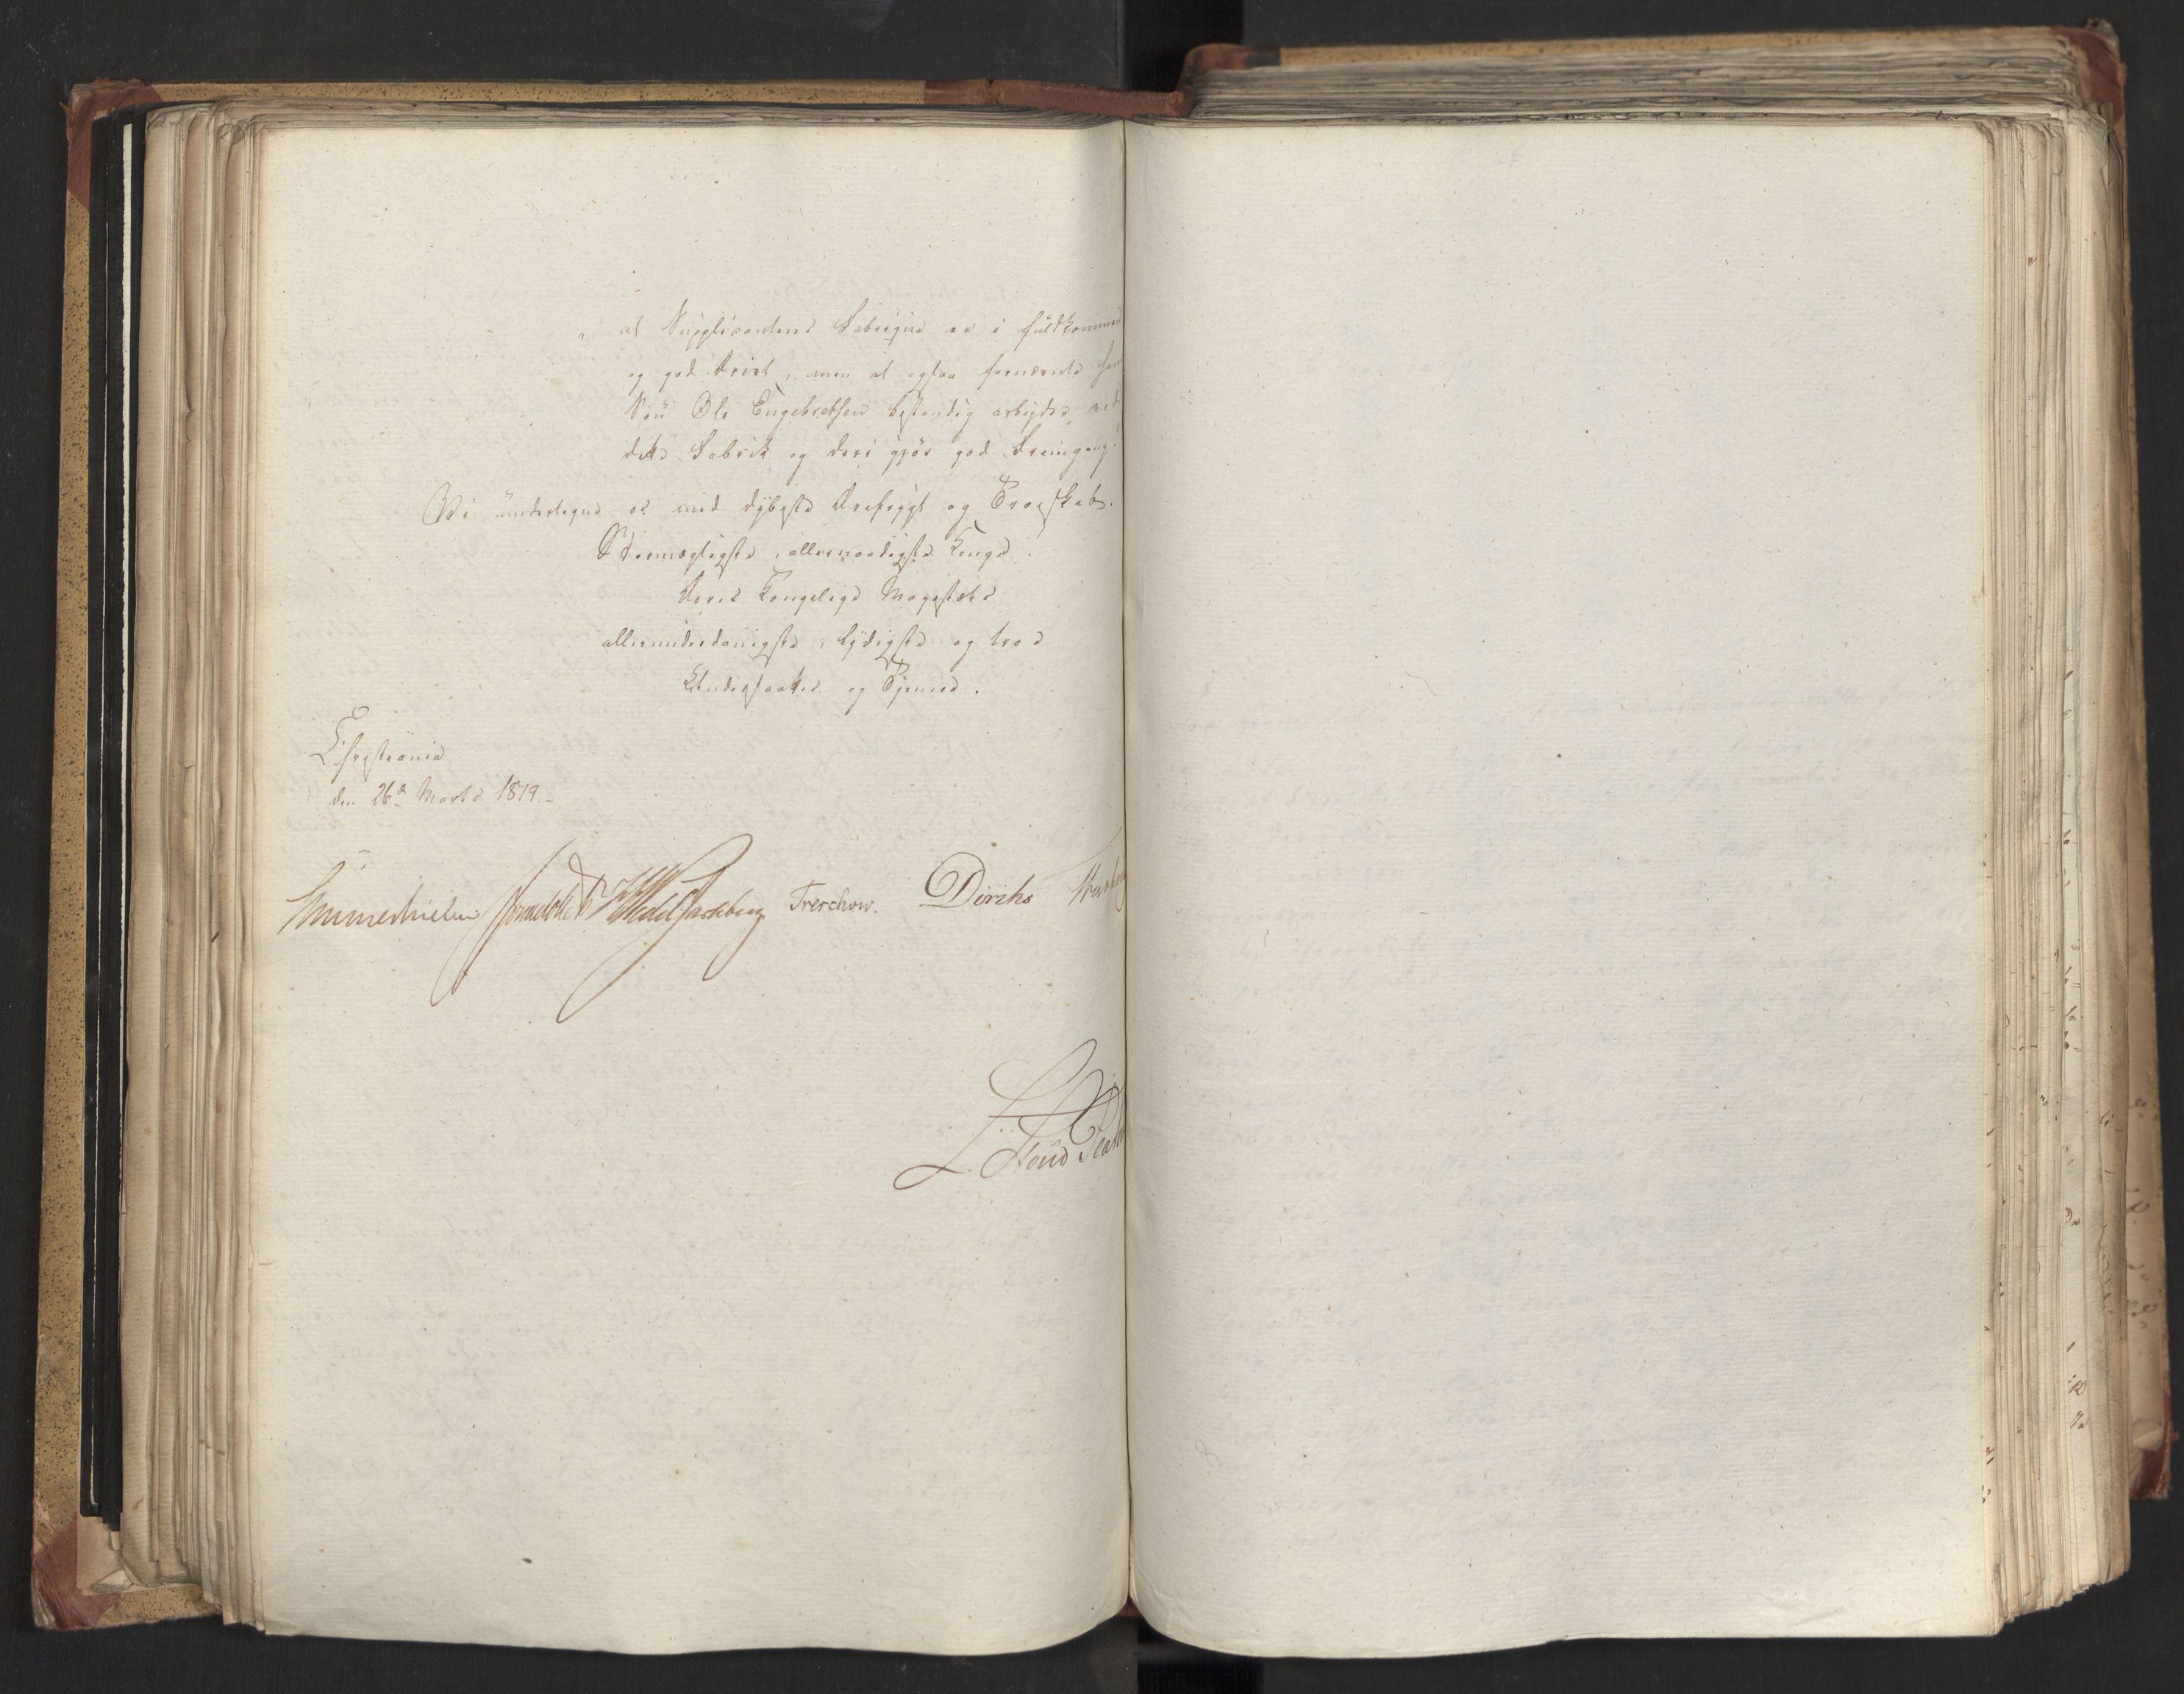 " at Supplicantens Fabrique er i fuldkommen
og god Drivt, men at ogsaa fornævnte hans
Søn Ole Engebretsen bestandig arbejder ved
dette Fabrik og deri gjør god Fremgang!
Vi undertegne os med dybeste Ærefrygt og Troeskab.
Stormægtigste, allernaadigste Konge!
Deres Kongelige Majestæts
allerunderdanigste, lydigste og troe
Undersaatter og Tjenere.
Christiania
den 26de Marts 1819.
Sommerhielm HWedelJarlsberg Treschow. Diriks